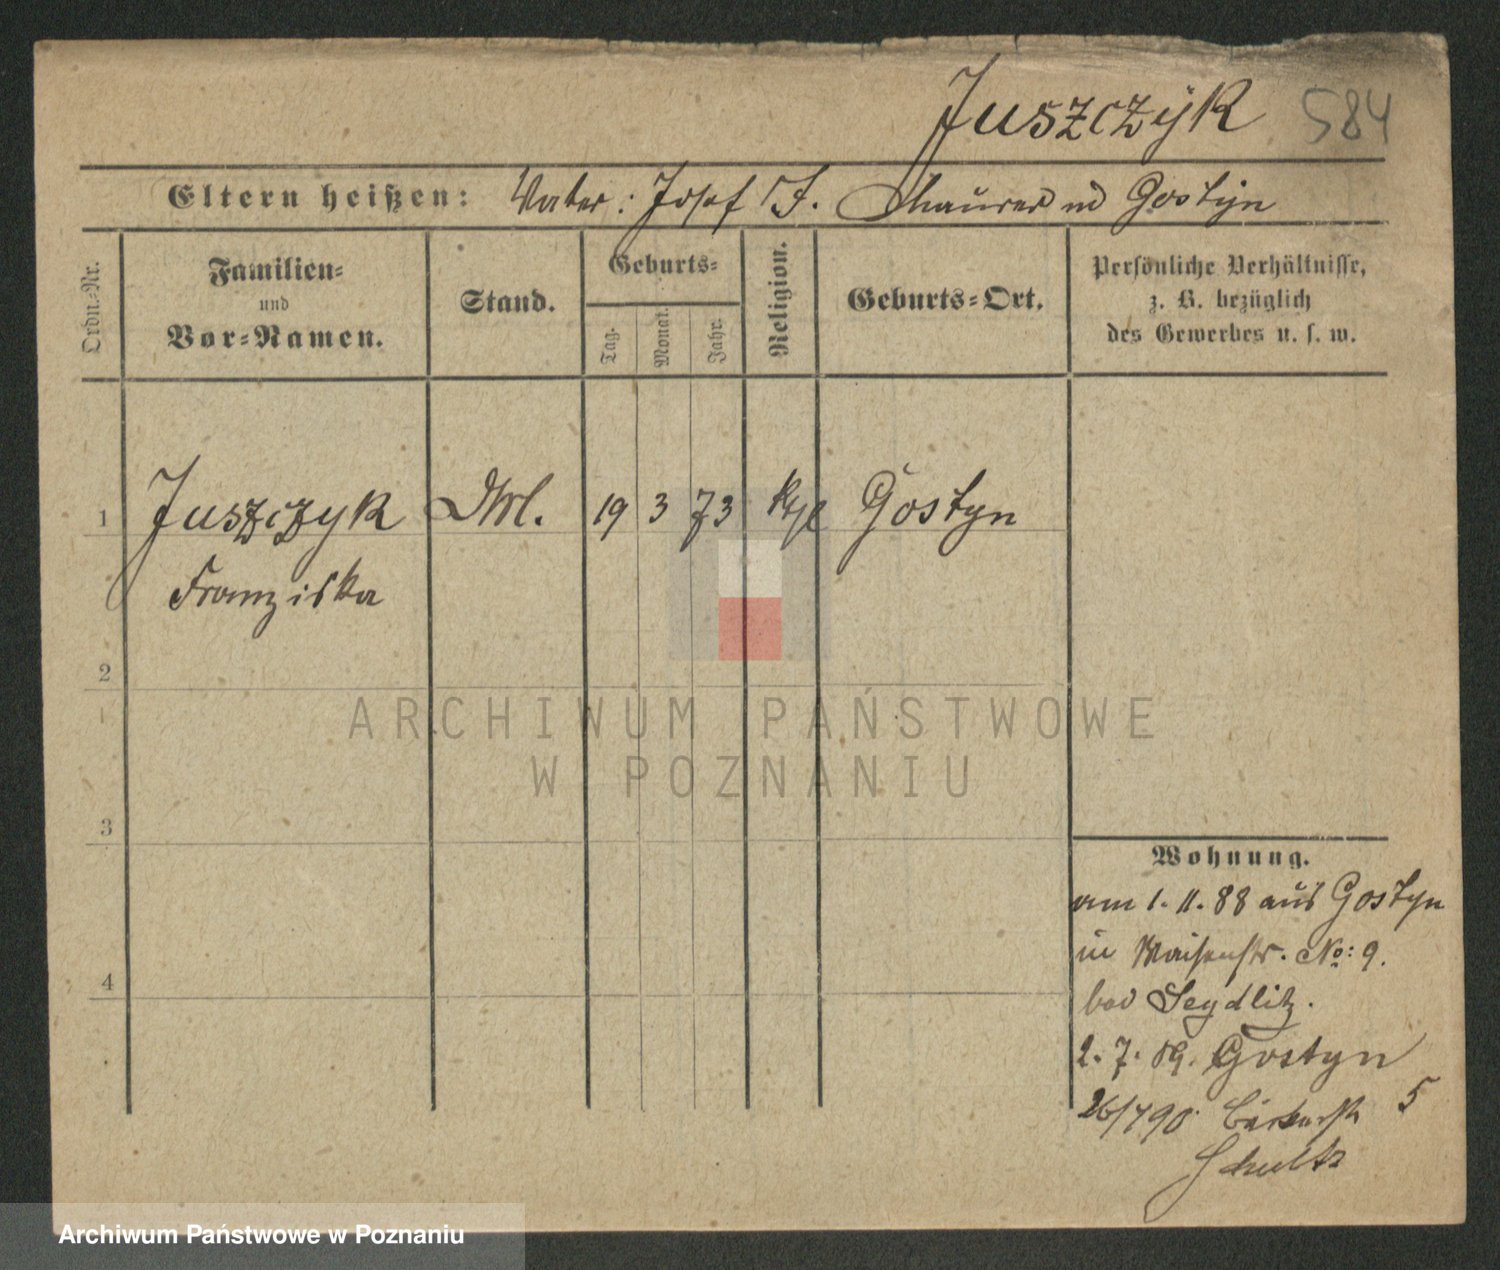 Juszczyk 584
Eltern heißen: Vater: Josef J. Maurer in Gostyn
Ordn.-Nr.
Familien-
und
Vor-Namen.
Stand.
Geburts-
Tag.
Monat.
Jahr.
Religion.
Geburts-Ort.
Persönliche Verhältnisse,
z. B. bezüglich
des Gewerbes u. s. w.
1 Juszczyk 19 3 73 Gostyn
Franziska
2
3
4
ARCHIWUM PAŃSTWOWE
W POZNANIU
Wohnung.
am 1. 11. 88 aus Gostyn
in Waisenstr. No: 9.
bei Seydlitz.
2. 7. 89. Gostyn
26/7 90 Bäckerstr 5
Schultz
Archiwum Państwowe w Poznaniu